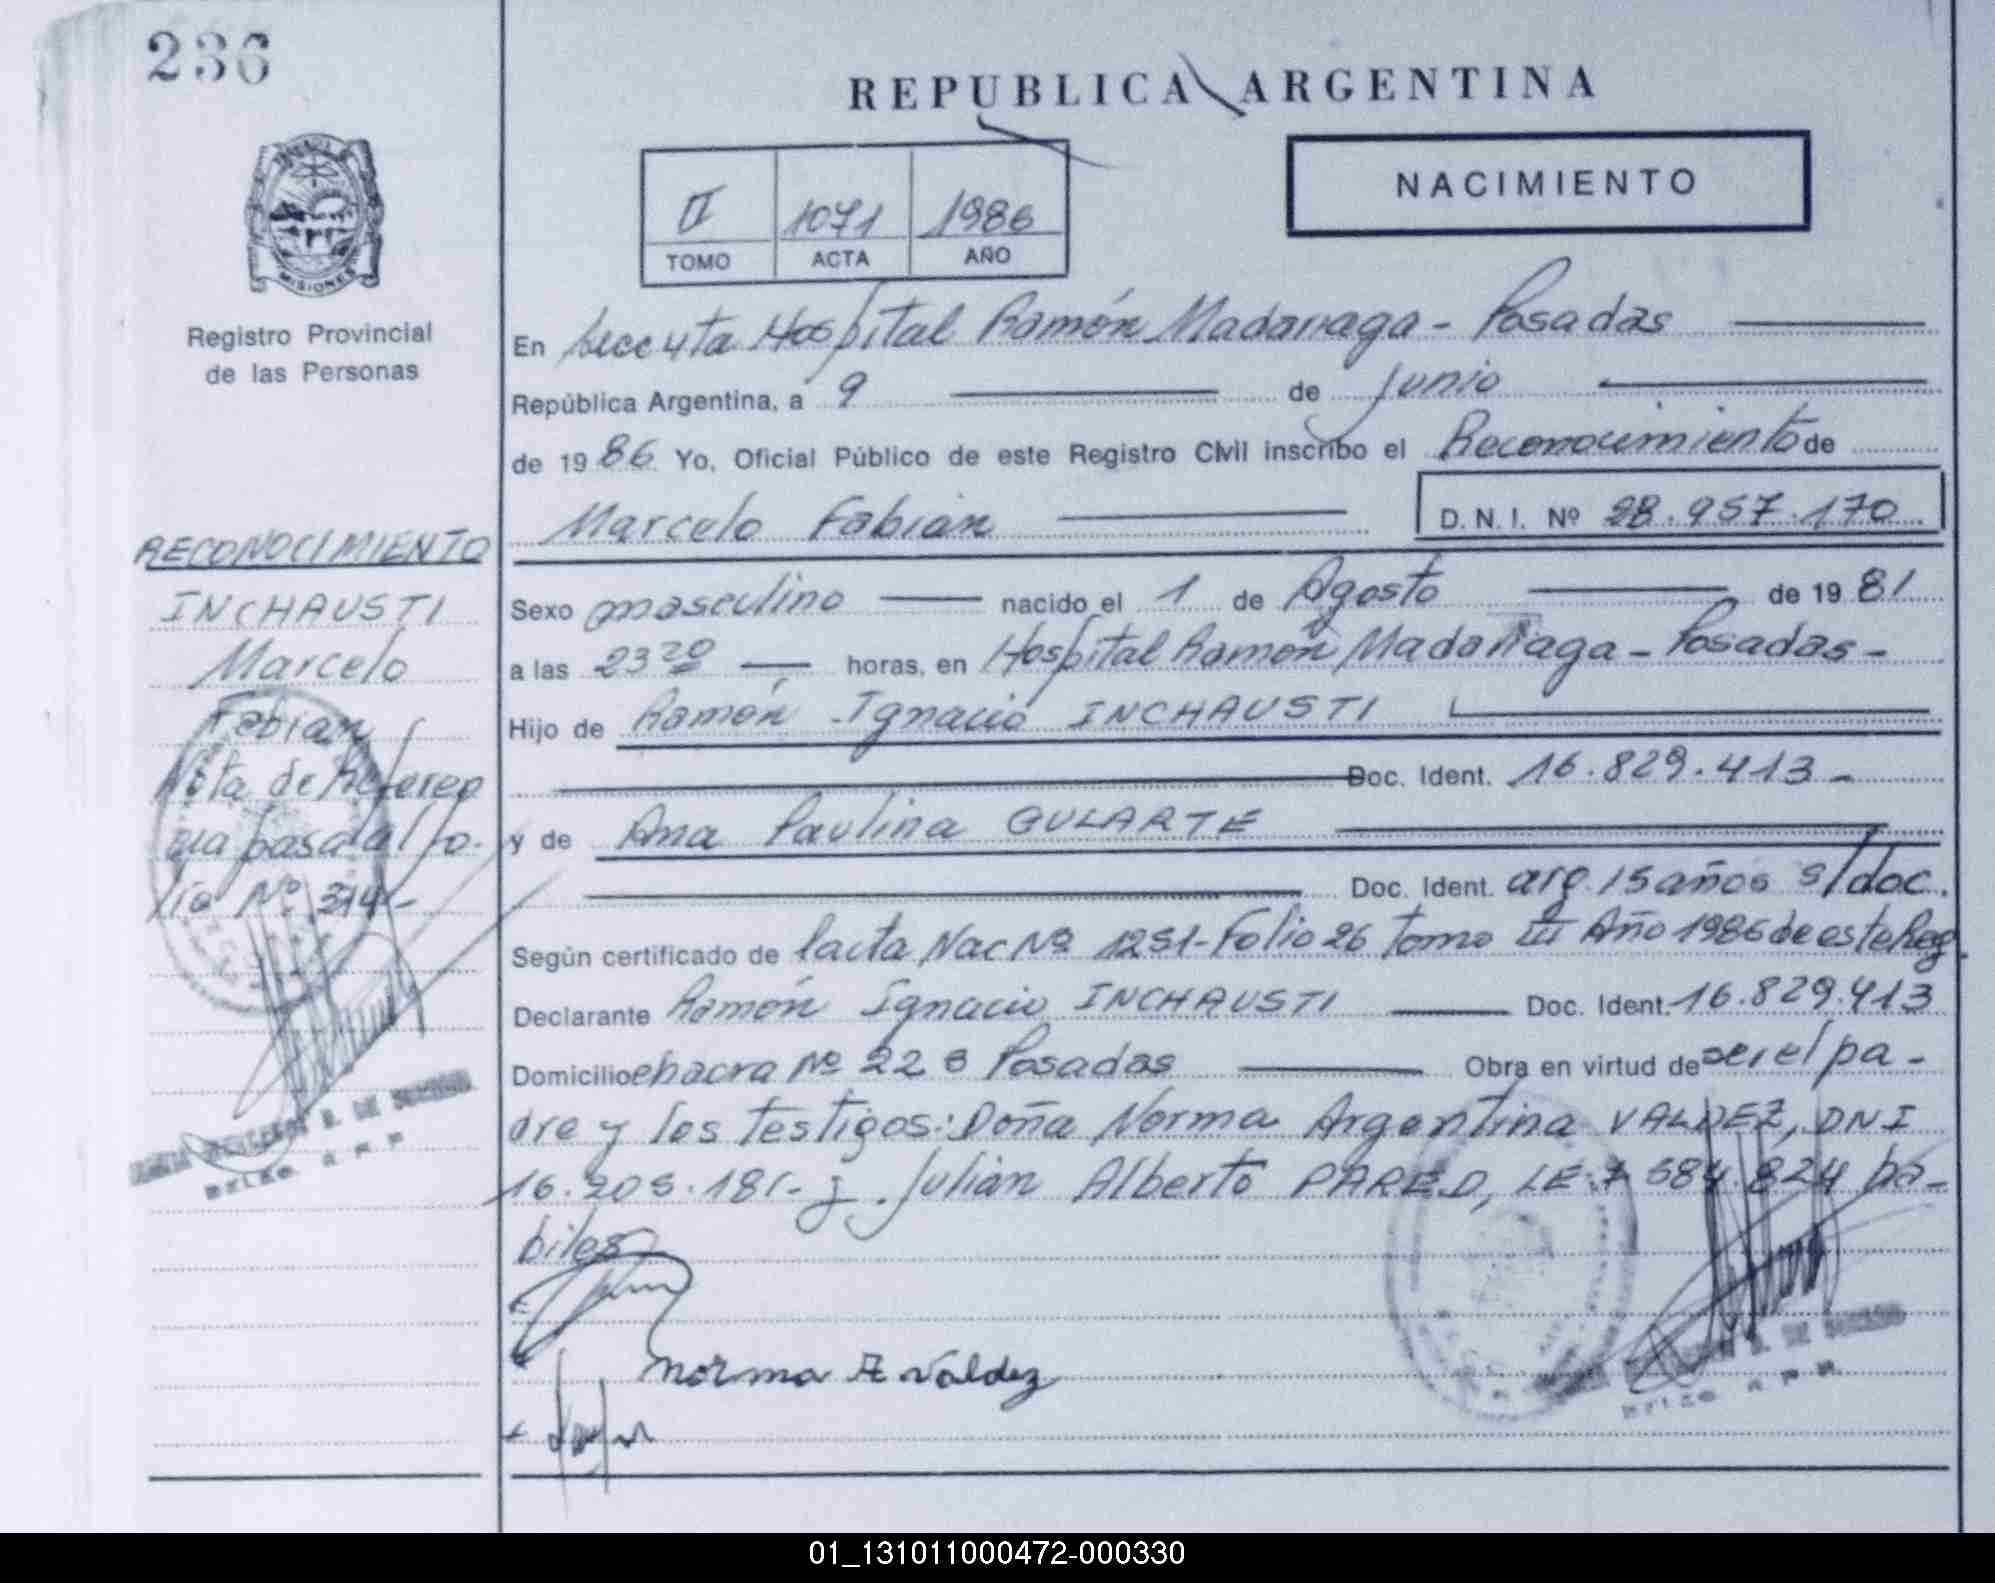 236
REPUBLICA ARGENTINA
NACIMIENTO
II 1071 1986
TOMO ACTA AÑO
MISIONES
Registro Provincial
de las Personas
En Secc 4ta Hospital Ramón Madariaga - Posadas
República Argentina, a 9 de Junio
de 1986 Yo, Oficial Público de este Registro Civil inscribo el Reconocimiento de
Marcelo Fabián D.N.I. Nº 28.957.170
Sexo masculino nacido el 1 de Agosto de 1981
a las 23 20 horas, en Hospital Ramón Madariaga - Posadas -
Hijo de Ramón Ignacio INCHAUSTI
Doc. Ident. 16.829.413 -
y de Ana Paulina GULARTE
Doc. Ident. arg. 15 años s/doc.
Según certificado de l'acta Nac Nº 1251 - Folio 26 Tomo III Año 1986 de este Reg.
Declarante Ramón Ignacio INCHAUSTI Doc. Ident. 16.829.413
Domicilio chacra Nº 228 Posadas Obra en virtud de ser el pa-
dre y los testigos: Doña Norma Argentina VALDEZ, DNI
16.205.181 - y Julián Alberto PARED, LE 7 584 824 há-
biles
Norma A Valdez
RECONOCIMIENTO
INCHAUSTI
Marcelo
Fabián
Nota de Referen
cia pasa al fo-
lio Nº 314 -
01_131011000472-000330